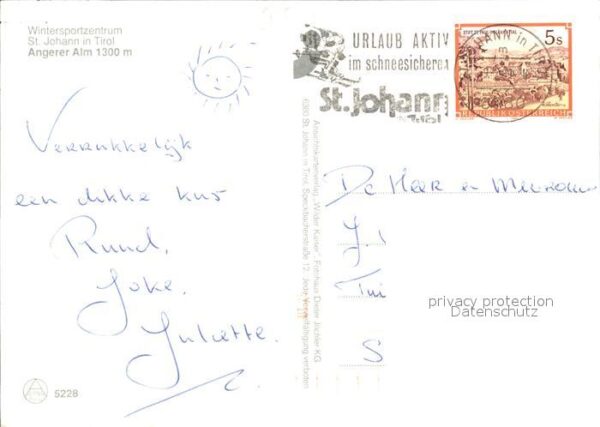 Wintersportzentrum
St. Johann in Tirol
Angerer Alm 1300 m
URLAUB AKTIV
im schneesicheren
St. Johann
in Tirol
5s
REPUBLIK ÖSTERREICH
Verrukkelijk
een dikke kus
Ruud.
Joke.
Juliette.
Ansichtskartenverlag „Wilder Kaiser“, Fotohaus Dieter Jöchler KG
6380 St. Johann in Tirol, Speckbacherstraße 12. Jede Vervielfältigung verboten
De Heer en Mevrouw
J.
Tui
S
privacy protection
Datenschutz
5228